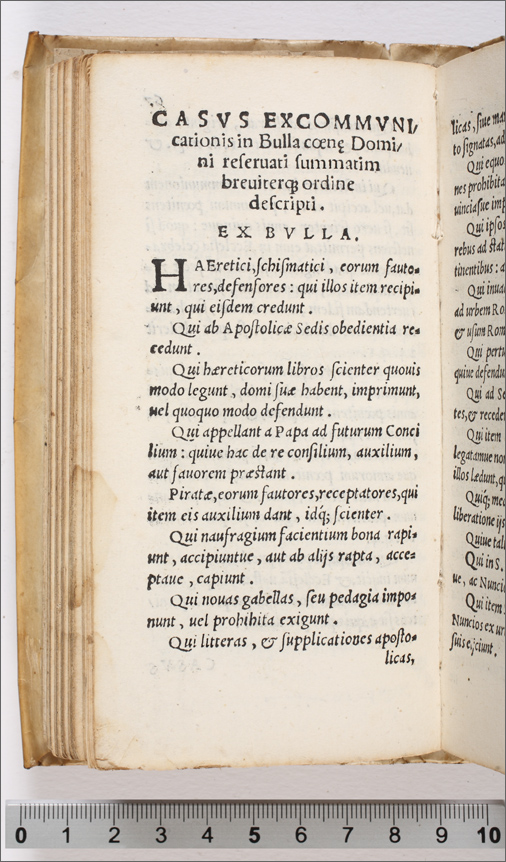 CASVS EXCOMMVNI/
cationis in Bulla cœnę Domi/
ni reseruati summatim
breuiterq; ordine
descripti.
EX BVLLA.
HAEretici, schismatici, eorum fauto-
res, defensores: qui illos item recipi-
unt, qui eisdem credunt.
Qui ab Apostolicæ Sedis obedientia re-
cedunt.
Qui hæreticorum libros scienter quouis
modo legunt, domi suæ habent, imprimunt,
uel quoquo modo defendunt.
Qui appellant a Papa ad futurum Conci
lium: quiue hac de re consilium, auxilium,
aut fauorem præstant.
Piratæ, eorum fautores, receptatores, qui
item eis auxilium dant, idq; scienter.
Qui naufragium facientium bona rapi-
unt, accipiuntue, aut ab alijs rapta, acce-
ptaue, capiunt.
Qui nouas gabellas, seu pedagia impo-
nunt, uel prohibita exigunt.
Qui litteras, & supplicationes aposto-
licas,
licas, siue
to signatas, ad
Qui equo
nes prohibita
uinciasue imp
Qui ipsos
rebus ad stat
tinentibus: a
Qui inuad
ad urbem Ro
& usum Rom
Qui pertu
quiue defendu
Qui ad Se
tes, & recede
Qui item
legatamue non
illos lædunt, q
Quiq; med
liberatione ijs
Quiue tali
Qui in S.
ue, ac Nuncio
Qui item
Nuncios ex ur
suis eijciunt.
0 1 2 3 4 5 6 7 8 9 10